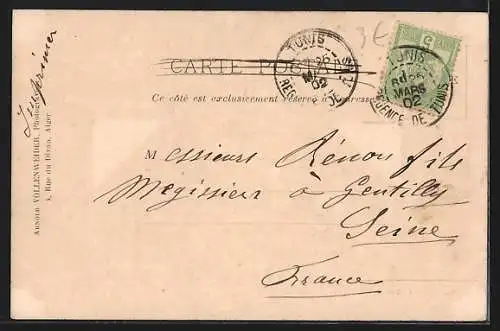 3€
5
TUNIS
26
MARS
02
REGENCE DE TUNIS
TUNIS
26
MARS
02
REGENCE DE TUNIS
CARTE POSTALE
Ce côté est exclusivement réservé à l'adresse
Imprimé
ARNOLD VOLLENWEIDER, Photographe
4, Rue du Divan, Alger
Messieurs Rénou fils
Mégissier à Gentilly
Seine
France